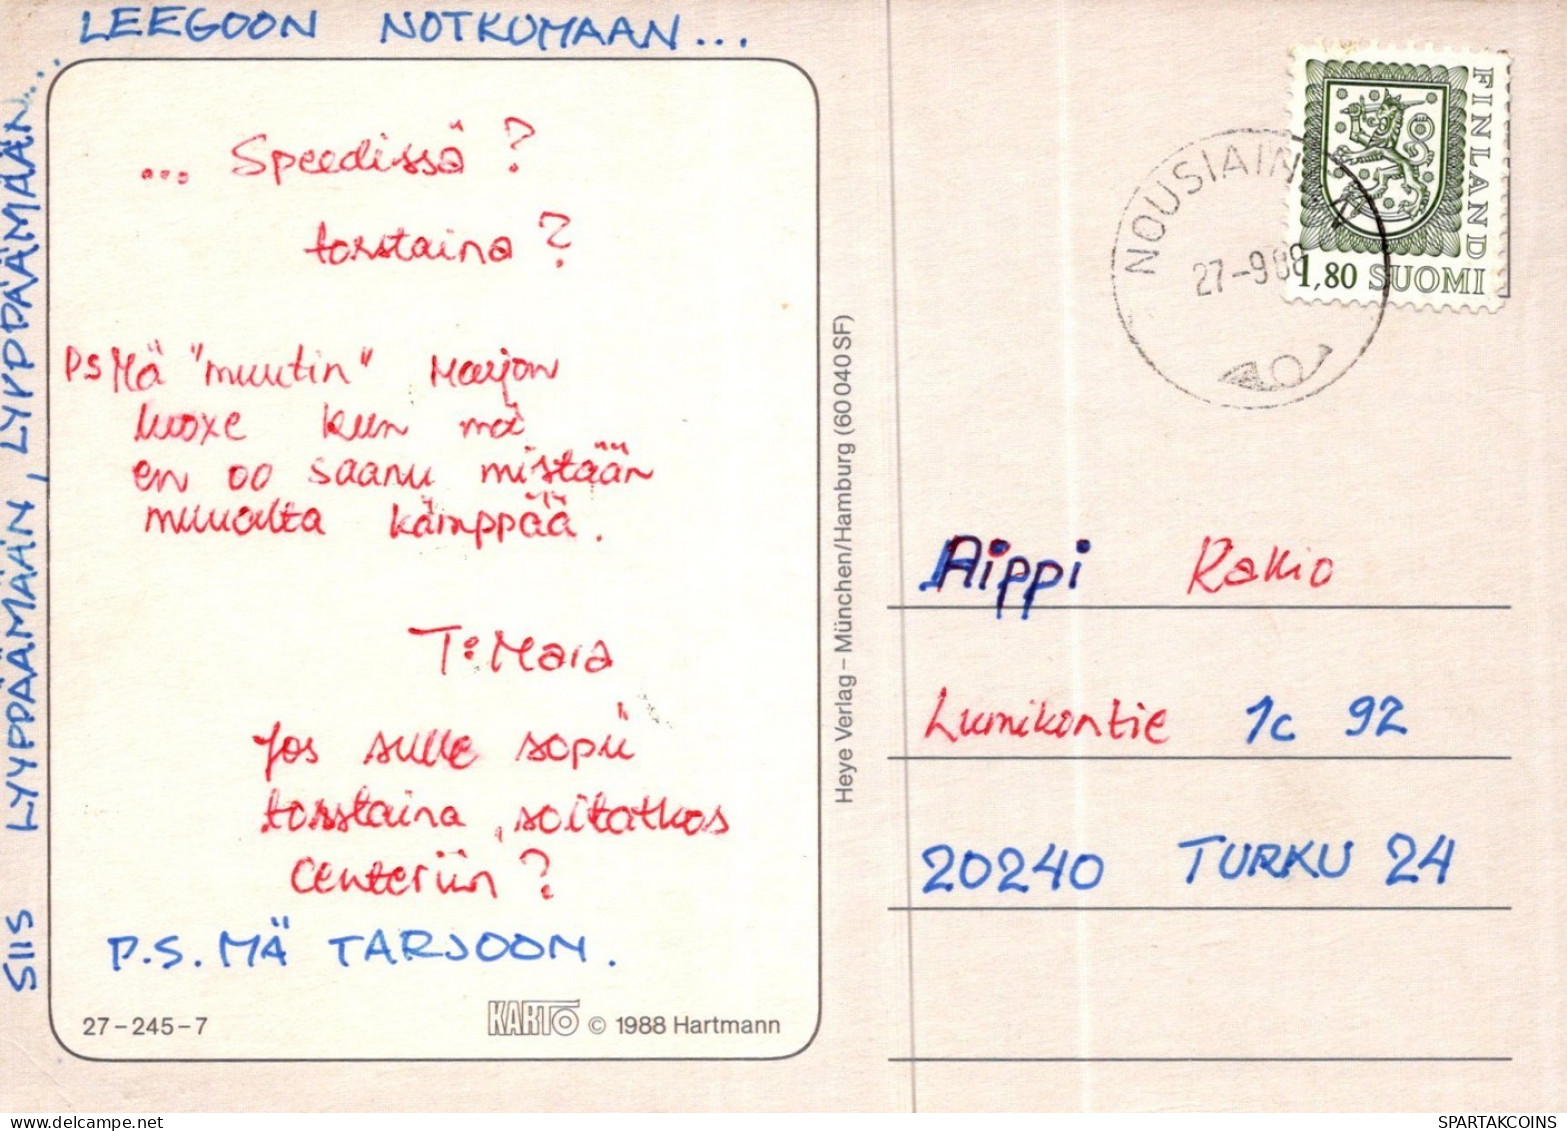 LEEGOON NOTKUMAAN...
SIIS LYYPPÄÄMÄÄN, LYYPPÄÄMÄÄN...
... Speedissä?
torstaina?
PS Mä "muutin" Marjon
luoxe kun mä
en oo saanu mistään
muualta kämppää.
T: Mara
Jos sulle sopii
torstaina, soitatkos
Centeriin?
P.S. MÄ TARJOON.
27-245-7
KARTO © 1988 Hartmann
Heye Verlag – München/Hamburg (60 040 SF)
FINLAND
1,80 SUOMI
NOUSIAINEN
27-9 88
Aippi Rakio
Lumikontie 1c 92
20240 TURKU 24
SPARTAKCOINS